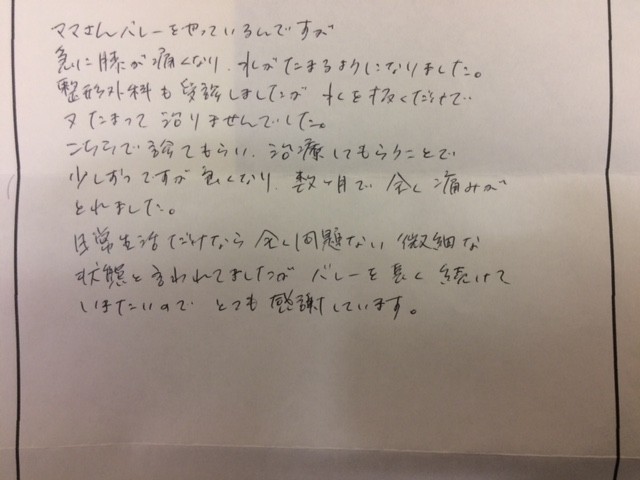 ママさんバレーをやっているんですが
急に膝が痛くなり、水がたまるようになりました。
整形外科も受診しましたが 水を抜くだけで
又たまって治りませんでした。
こちらで診てもらい、治療してもらうことで
少しずつですが良くなり、数ヶ月で 全く痛みが
とれました。
日常生活だけなら全く問題ない 微細な
状態と言われてましたが バレーを長く続けて
いきたいので とても感謝しています。